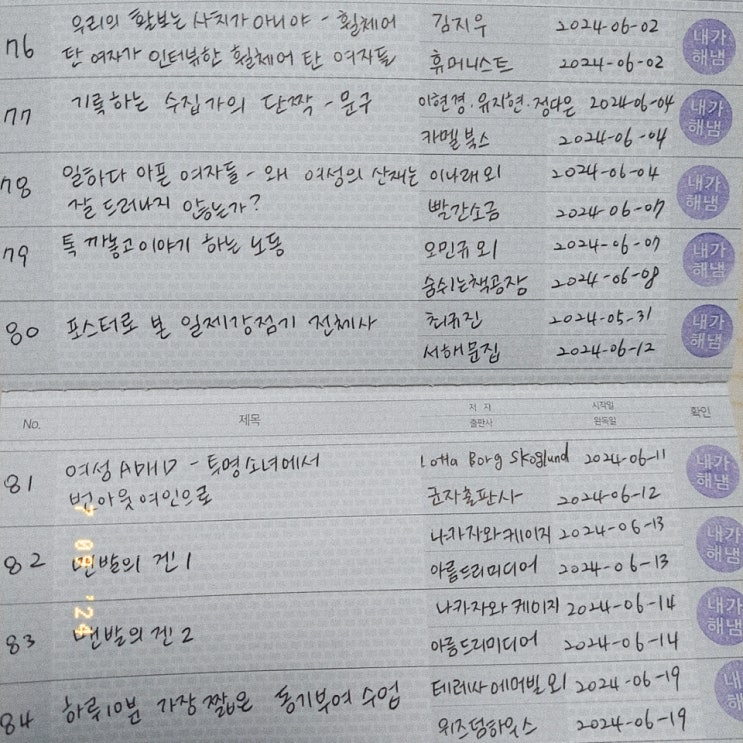 76 우리의 활보는 사치가 아니야 - 휠체어 김지우 2024-06-02 내가
탄 여자가 인터뷰한 휠체어 탄 여자들 휴머니스트 2024-06-02 해냄
77 기록하는 수집가의 단짝 - 문구 이현경·유지현·정다은 2024-06-04 내가
카멜북스 2024-06-04 해냄
78 일하다 아픈 여자들 - 왜 여성의 산재는 이나래 외 2024-06-04 내가
잘 드러나지 않는가? 빨간소금 2024-06-07 해냄
79 톡 까놓고 이야기 하는 노동 오민규 외 2024-06-07 내가
숨쉬는책공장 2024-06-08 해냄
80 포스터로 본 일제강점기 전체사 최규진 2024-05-31 내가
서해문집 2024-06-12 해냄
No. 제목 저 자 시작일 확인
출판사 완독일
81 여성 ADHD - 투명소녀에서 Lotta Borg Skoglund 2024-06-11 내가
번아웃 여인으로 군자출판사 2024-06-12 해냄
82 맨발의 겐 1 나카자와 케이지 2024-06-13 내가
아름드리미디어 2024-06-13 해냄
83 맨발의 겐 2 나카자와 케이지 2024-06-14 내가
아름드리미디어 2024-06-14 해냄
84 하루 10분 가장 짧은 동기부여 수업 테레사 에머빌 외 2024-06-19 내
위즈덤하우스 2024-06-19 해
7 08 '24